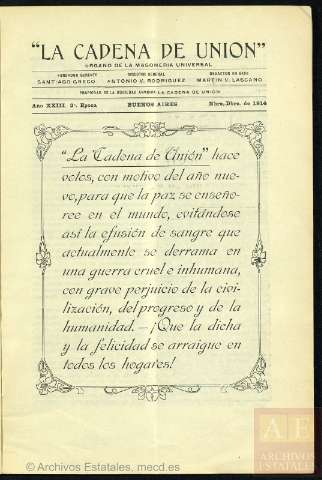 "LA CADENA DE UNION"
ORGANO DE LA MASONERIA UNIVERSAL
DIRECTOR GENERAL
SANTIAGO GRECO ANTONIO V. RODRIGUEZ MARTIN V. LASCANO
PROPIEDAD DE LA SOCIEDAD ANONIMA LA CADENA DE UNION
Año XXIII. 2ª. Epoca BUENOS AIRES Nbre. Dbre. de 1914
"La Cadena de Unión" hace
votos, con motivo del año nue-
vo, para que la paz se enseño-
ree en el mundo, evitándose
así la efusión de sangre que
actualmente se derrama en
una guerra cruel é inhumana,
con grave perjuicio de la civi-
lización, del progreso y de la
humanidad.—¡Que la dicha
y la felicidad se arraigue en
todos los hogares!
AE
ARCHIVOS
ESTATALES
© Archivos Estatales, mecd.es